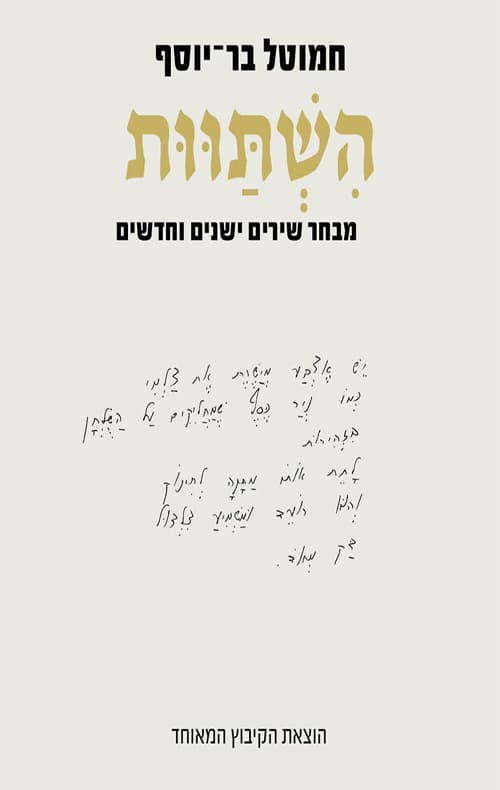 חמוטל בר־יוסף
הִשְׁתַּוּוּת
מבחר שירים ישנים וחדשים
יֵשׁ אֶצְבַּע מְיַשֶּׁרֶת אֶת צַלְמִי
כְּמוֹ נְיַר כֶּסֶף שֶׁמַּחֲלִיקִים עַל הַשֻּׁלְחָן
בִּזְהִירוּת
לָתֵת אוֹתוֹ מַתָּנָה לְתִינוֹק
וְהוּא רוֹעֵד וּמַשְׁמִיעַ צִלְצוּל
דַּק מְאוֹד.
הוצאת הקיבוץ המאוחד